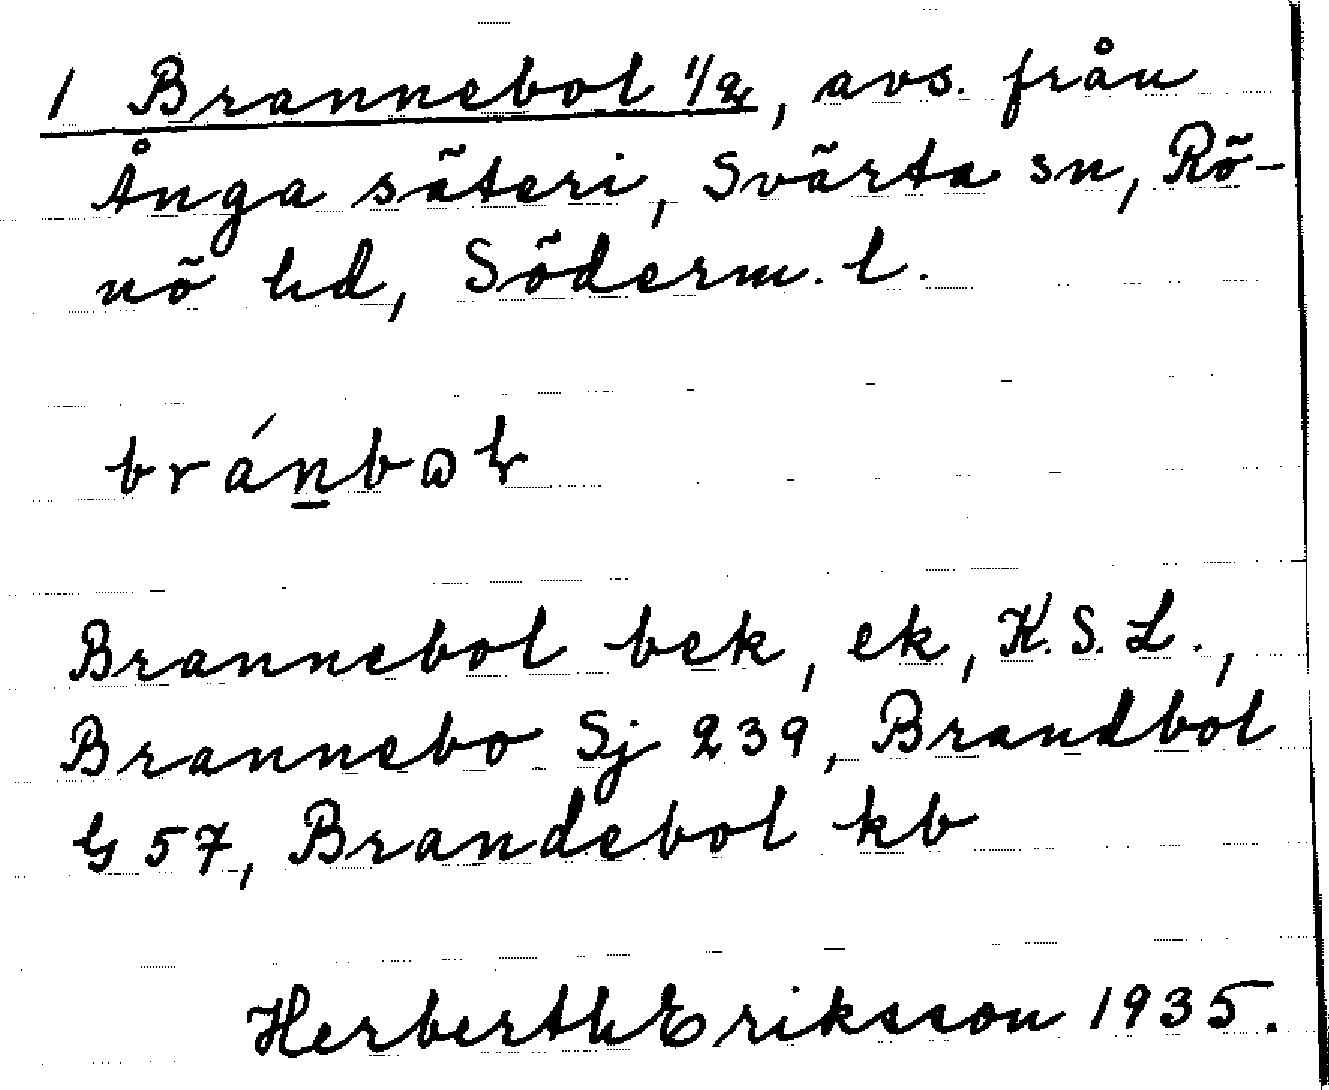 1 Brannebol 1/2, avs. från
Ånga säteri, Svärta sn, Rö-
nö hd, Söderm. l.
bránbɷł
Brannebol bek, ek, K.S.L.,
Brannebo Sj 239, Brandbol
G 57, Brandebol kb
Herberth Eriksson 1935.